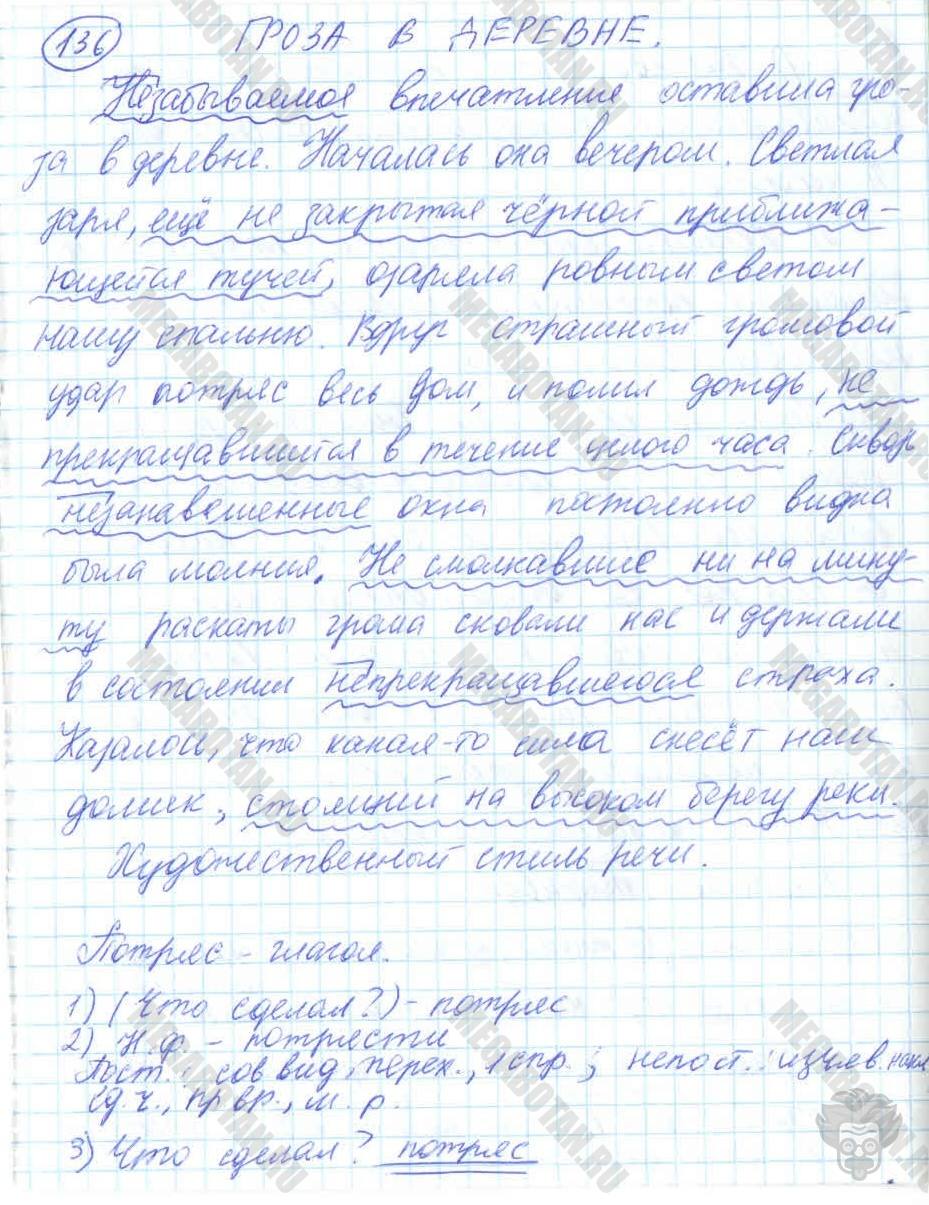 136 ГРОЗА В ДЕРЕВНЕ.
Незабываемое впечатление оставила гро-
за в деревне. Началась она вечером. Светлая
заря, ещё не закрытая чёрной приближа-
ющейся тучей, озаряла ровным светом
нашу спальню. Вдруг страшный громовой
удар потряс весь дом, и полил дождь, не
прекращавшийся в течение целого часа. Сквозь
незанавешенные окна постоянно видна
была молния. Не смолкавшие ни на мину-
ту раскаты грома сковали нас и держали
в состоянии непрекращавшегося страха.
Казалось, что какая-то сила снесёт наш
домик, стоящий на высоком берегу реки.
Художественный стиль речи.
Потряс - глагол.
1) (Что сделал?) - потряс
2) Н.ф. - потрясти
Пост.: сов вид, перех., 1 спр.; непост.: изъяв. накл
ед.ч., пр вр., м.р.
3) Что сделал? потряс
MEGABOTAN.RU